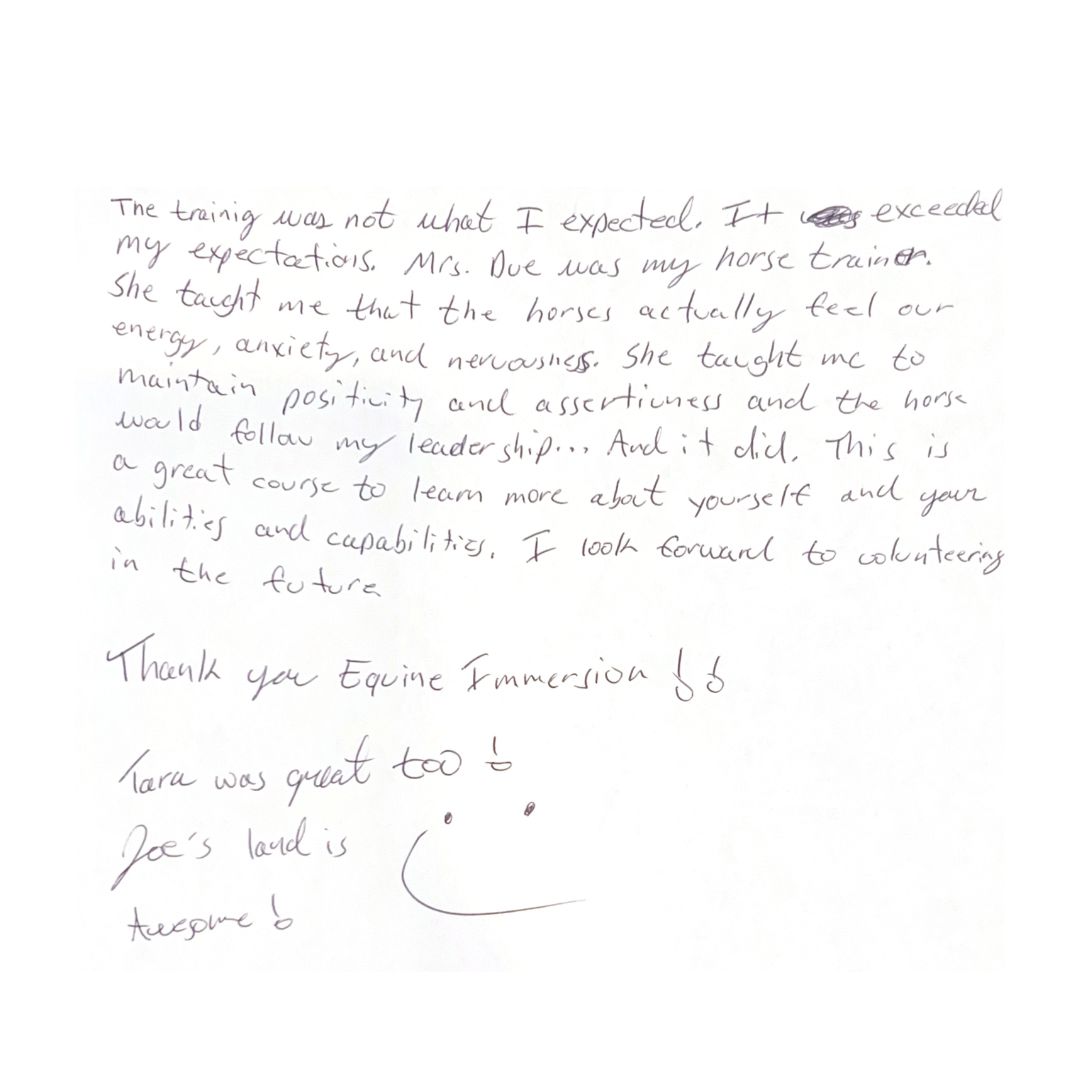 The trainig was not what I expected. It exceeded
my expectations. Mrs. Due was my horse trainer.
She taught me that the horses actually feel our
energy, anxiety, and nervousness. She taught me to
maintain positivity and assertivness and the horse
would follow my leadership... And it did. This is
a great course to learn more about yourself and your
abilities and capabilities. I look forward to volunteering
in the future
Thank you Equine Immersion !!
Tara was great too !
Joe's land is
Awesome !